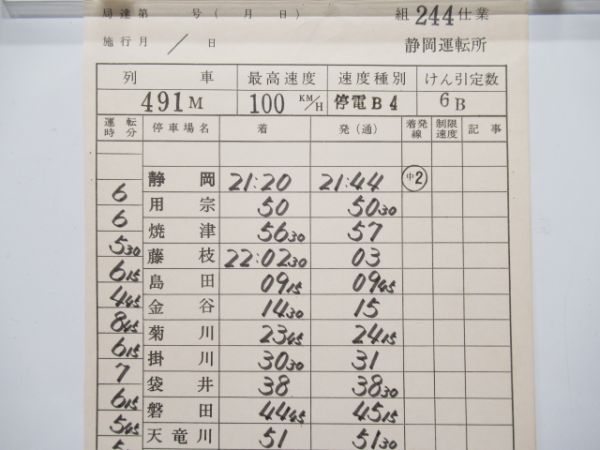 局達第 号( 月 日) 組244仕業
施行月 / 日 静岡運転所
列車 最高速度 速度種別 けん引定数
491M 100 KM/H 停電B4 6B
運転時分 停車場名 着 発(通) 着発線 制限速度 記事
静岡 21:20 21:44 中2
6
用宗 50 50 30
6
焼津 56 30 57
5 30
藤枝 22:02 30 03
6 15
島田 09 15 09 45
4 45
金谷 14 30 15
8 45
菊川 23 45 24 15
6 15
掛川 30 30 31
7
袋井 38 38 30
6 15
磐田 44 45 45 15
5 45
天竜川 51 51 30